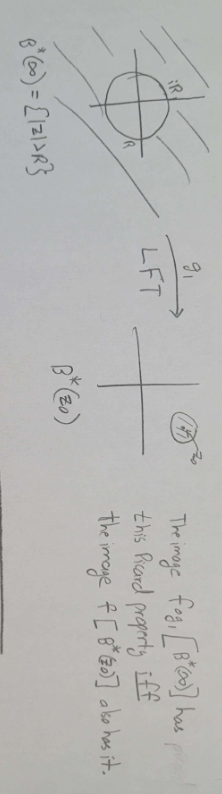 iR
R
B*(∞) = {|z|>R}
g₁
LFT
z₀
B*(z₀)
The image f∘g₁[B*(∞)] has
this Picard property iff
the image f[B*(z₀)] also has it.